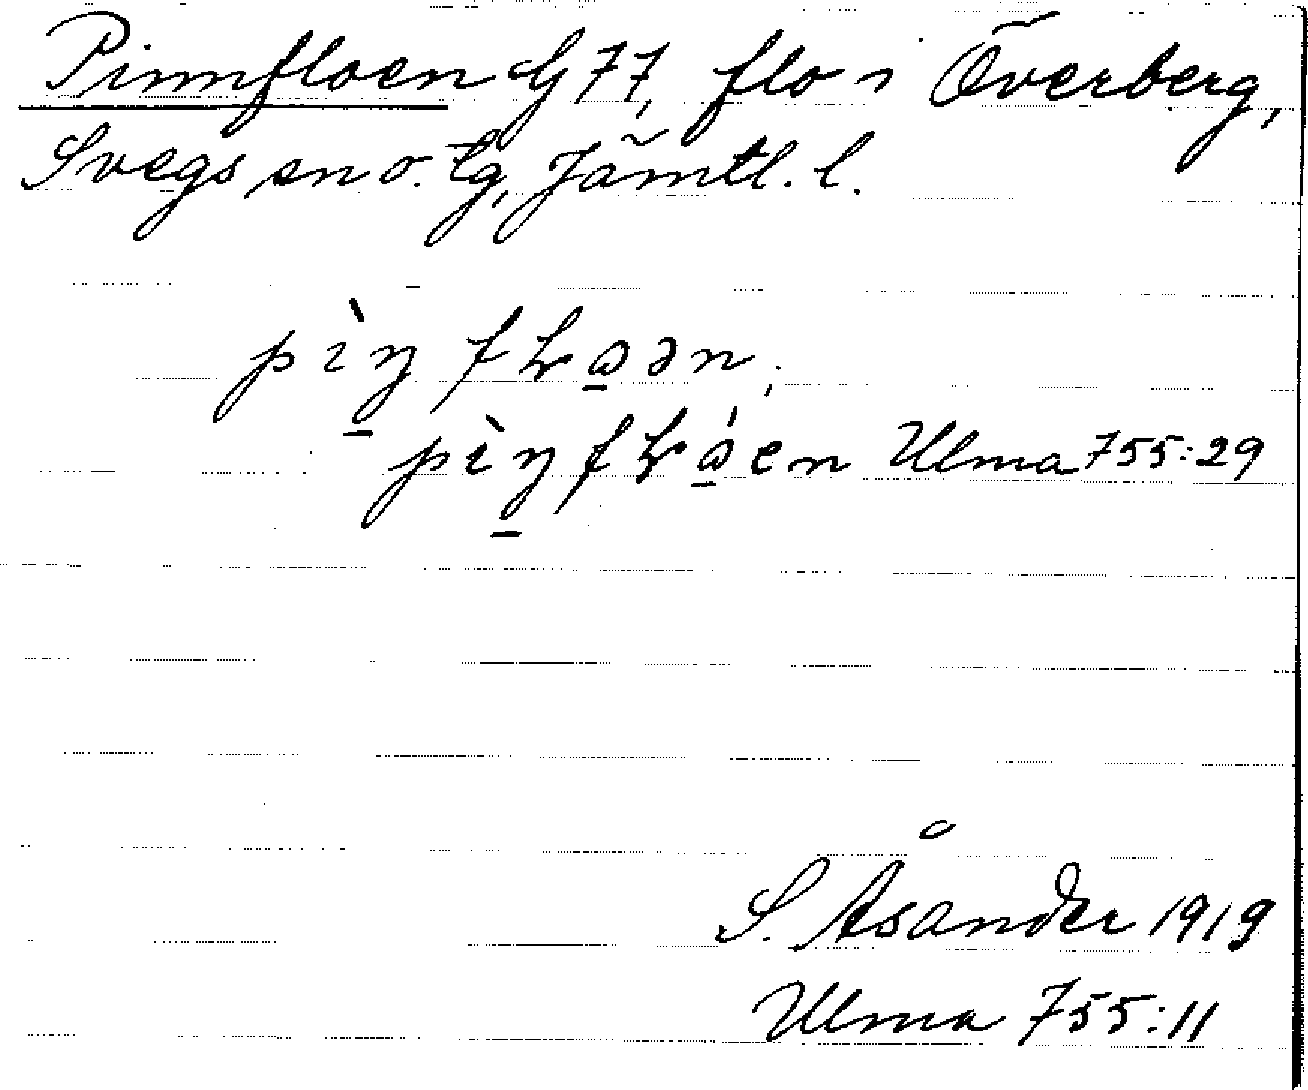 Pinnfloen G 77, flo i Överberg,
Svegs sn o. tg, Jämtl. l.
pìŋfɫɷən;
pìŋfɫɷ́en Ulma 755:29
S. Åsander 1919
Ulma 755:11